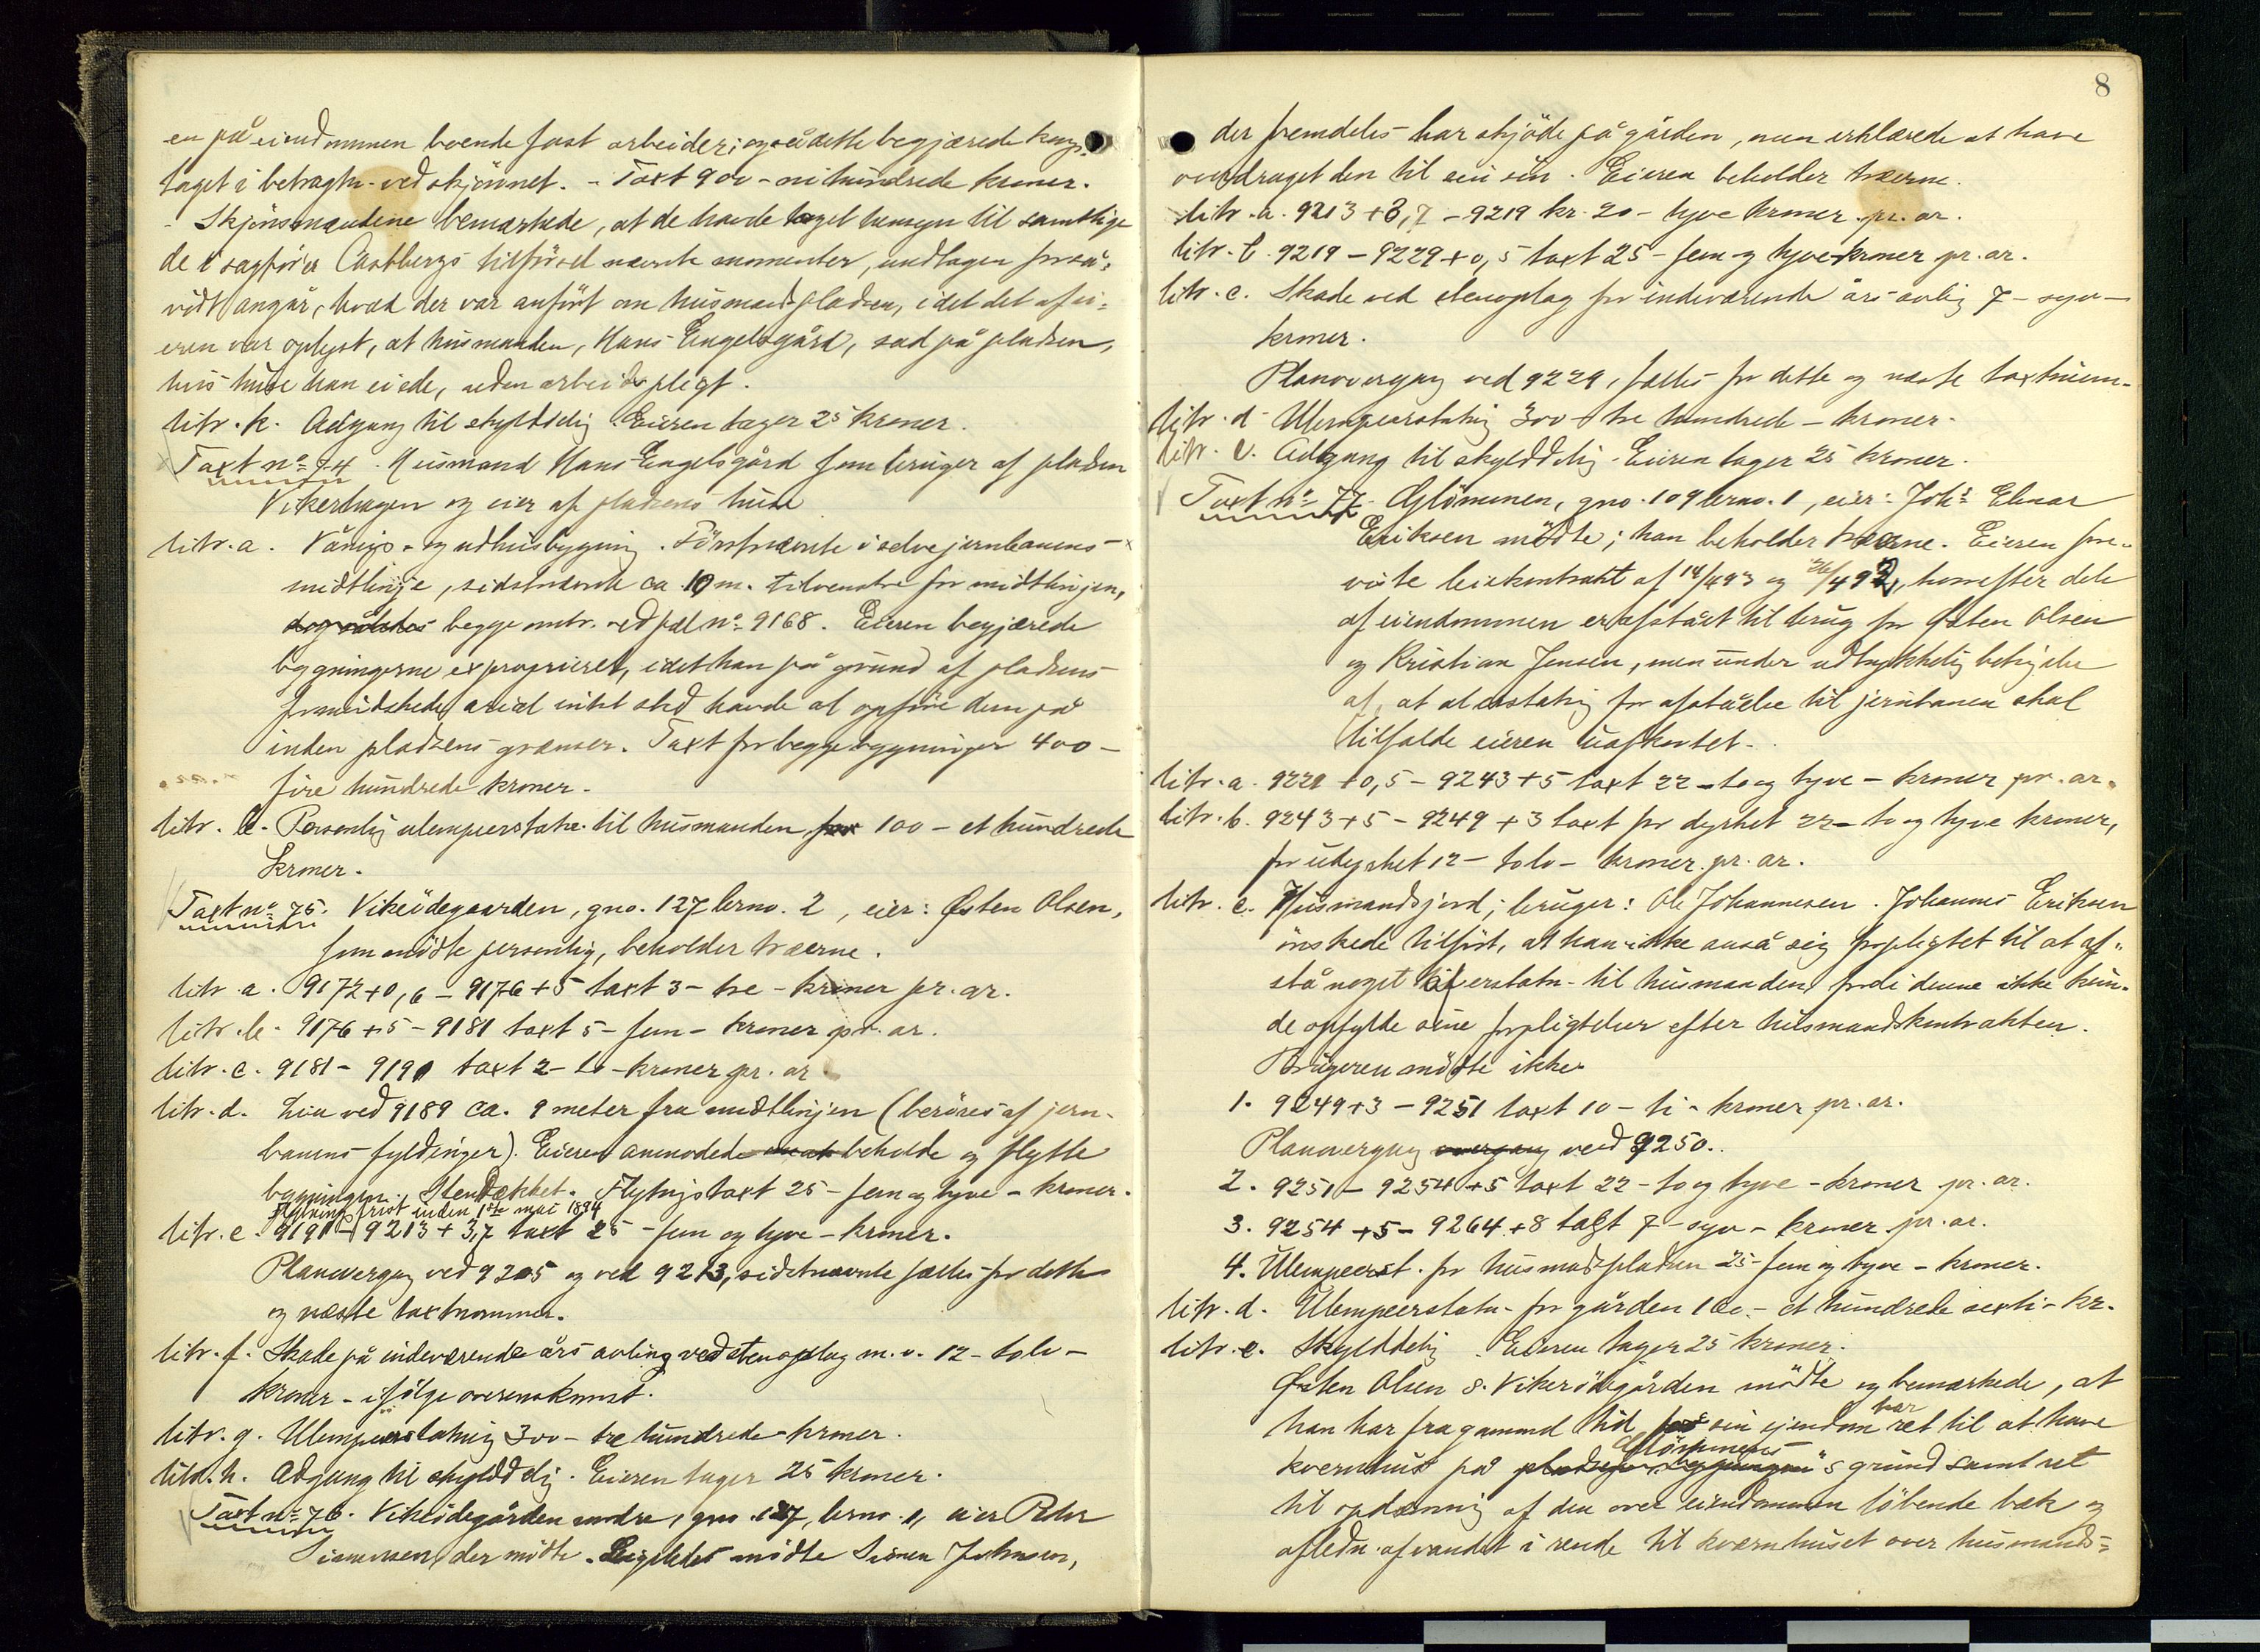 en på eiendommen boende fast arbeider; også dette begjærede han
taget i betragtn. ved skjønnet. - Taxt 900 - ni hundrede kroner.
- Skjønsmændene bemærkede, at de havde taget hensyn til samtlige
de i sagfører Castbergs tilførsel nævnte momenter, undtagen forså-
vidt angår, hvad der var anført om husmandspladsen, idet det af ei-
eren var oplyst, at husmanden, Hans Engelsgård, sad på pladsen,
hvis huse han eiede, uden arbeidspligt.
litr. k. Adgang til skylddelig. Eieren tager 25 kroner.
Taxt no 74. Husmand Hans Engelsgård som bruger af pladsen
Vikerhagen og eier af pladsens huse
litr. a. Vånings- og udhusbygning. Førstnævnte i selve jernbanens
midtlinje, sidstnævnte ca. 10 m. tilvenstre for midtlinjen,
begge omtr. ved pæl no 9168. Eieren begjærede
bygningerne exproprieret, idet han på grund af pladsens
formindskede areal intet sted havde at opføre dem på
inden pladsens grænser. Taxt for begge bygninger 400 -
fire hundrede kroner.
litr. b. Personlig ulempeerstatn. til husmanden for 100 - et hundrede
kroner.
Taxt no 75. Vikeødegaarden, gno. 127 brno. 2, eier: Østen Olsen,
som mødte personlig, beholder træerne.
litr. a. 9172+0,6 - 9176+5 taxt 3 - tre - kroner pr. ar.
litr. b. 9176+5 - 9181 taxt 5 - fem - kroner pr. ar.
litr. c. 9181 - 9191 taxt 2 - to - kroner pr. ar
litr. d. Låa ved 9189 ca. 9 meter fra midtlinjen (berøres af jern-
banens fyldinger). Eieren anmodede om at beholde og flytte
bygningen. Stendækket. Flytnigstaxt 25 - fem og tyve - kroner.
Flytningsfrist inden 1ste mai 1894
litr. e. 9191 - 9213+3,7 taxt 25 - fem og tyve - kroner.
Planovergang ved 9205 og ved 9213, sidstnævnte fælles for dette
og næste taxtnummer.
litr. f. Skade på indeværende års avling ved stenoplag m.v. 12 - tolv -
kroner - ifølge overenskomst.
litr. g. Ulempeerstatnig 300 - tre hundrede - kroner.
litr. h. Adgang til skylddelig. Eieren tager 25 kroner.
Taxt no 76. Vikeødegården nordre, gno. 127, brno. 1, eier Peder
Simensen, der mødte. Ligeledes mødte Simen Johnsen,
8
der fremdeles har skjøde på gården, men erklærede at have
overdraget den til sin søn. Eieren beholder træerne.
litr. a. 9213+3,7 - 9219 kr. 20 - tyve kroner pr. ar.
litr. b. 9219 - 9229+0,5 taxt 25 - fem og tyve - kroner pr. ar.
litr. c. Skade ved stenoplag for indeværende års avlig 7 - syv -
kroner.
Planovergang ved 9229, fælles for dette og næste taxtnum-
litr. d. Ulempeerstatnig 300 - tre hundrede - kroner.
litr. e. Adgang til skylddelig. Eieren tager 25 kroner.
Taxt no 77. Glömmen, gno. 109 brno. 1, eier: Johs Elmar
Eriksen mødte; han beholder træerne. Eieren fore-
viste leiekontrakt af 14/4 93 og 26/4 93, hvorefter dele
af eiendommen er afstået til brug for Østen Olsen
og Kristian Jensen, men under udtrykkelig betingelse
af, at al erstatnig for afståelse til jernbanen skal
tilfalde eieren uafkortet.
litr. a. 9229+0,5 - 9243+5 taxt 22 - to og tyve - kroner pr. ar.
litr. b. 9243+5 - 9249+3 taxt for dyrket 22 - to og tyve kroner,
for udyrket 12 - tolv - kroner pr. ar.
litr. c. Husmandsjord; bruger: Ole Johannesen. Johannes Eriksen
ønskede tilført, at han ikke anså sig forpligtet til at af-
stå noget af erstatn. til husmanden, fordi denne ikke kun-
de opfylde sine forpligtelser efter husmandskontrakten.
Brugeren mødte ikke
1. 9249+3 - 9251 taxt 10 - ti - kroner pr. ar.
Planovergang overgang ved 9250.
2. 9251 - 9254+5 taxt 22 - to og tyve - kroner pr. ar.
3. 9254+5 - 9264+8 taxt 7 - syv - kroner pr. ar.
4. Ulempeerst. for husmandspladsen 25 - fem og tyve - kroner.
litr. d. Ulempeerstatn. for gården 160 - et hundrede sexti - kr.
litr. e. Skylddelig. Eieren tager 25 kroner.
Østen Olsen s. Vikeødegården mødte og bemærkede, at
han har fra gammel tid for sin eiendom har ret til at have
kvernhus på Glömmens grund samt ret
til opdæmnig af den over eiendommen løbende bæk og
afledn. af vandet i rende til kværnhuset over husmands-